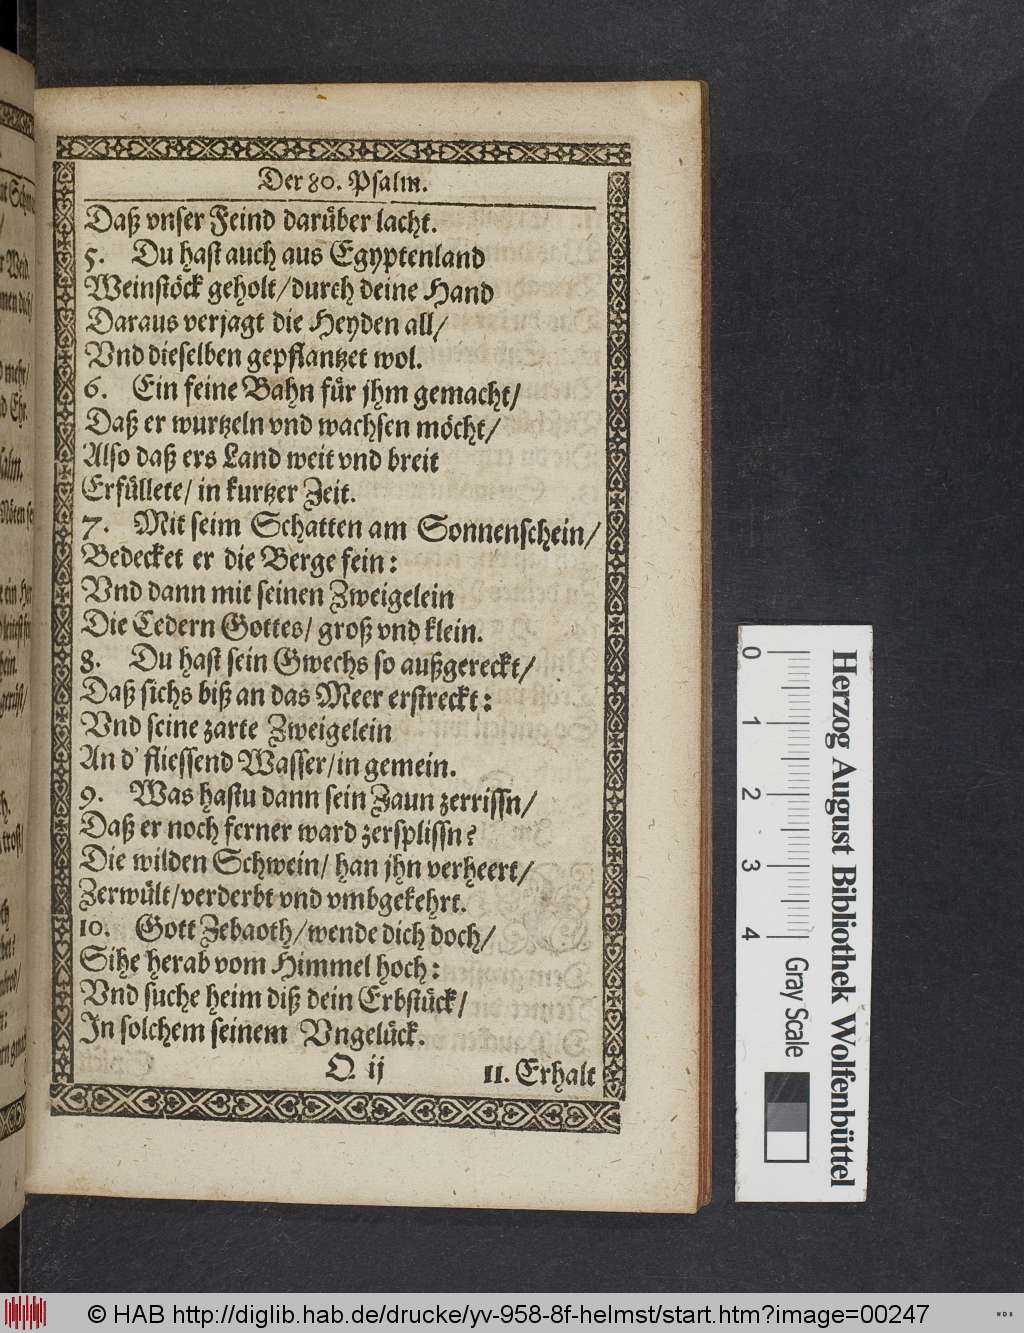 Der 80. Psalm.
Daß vnser Feind darüber lacht.
5. Du hast auch aus Egyptenland
Weinstöck geholt/durch deine Hand
Daraus verjagt die Heyden all/
Vnd dieselben gepflantzet wol.
6. Ein feine Bahn für jhm gemacht/
Daß er wurtzeln vnd wachsen möcht/
Also daß ers Land weit vnd breit
Erfüllete/ in kurtzer Zeit.
7. Mit seim Schatten am Sonnenschein/
Bedecket er die Berge fein:
Vnd dann mit seinen Zweigelein
Die Cedern Gottes/ groß vnd klein.
8. Du hast sein Gwechs so außgereckt/
Daß sichs biß an das Meer erstreckt:
Vnd seine zarte Zweigelein
An d' fliessend Wasser/in gemein.
9. Was hastu dann sein Zaun zerrissn/
Daß er noch ferner ward zersplissn?
Die wilden Schwein/ han jhn verheert/
Zerwült/verderbt vnd vmbgekehrt.
10. Gott Zebaoth/wende dich doch/
Sihe herab vom Himmel hoch:
Vnd suche heim diß dein Erbstück/
In solchem seinem Vngelück.
Q ij
11. Erhalt
0 1 2 3 4
Gray Scale
Herzog August Bibliothek Wolfenbüttel
© HAB http://diglib.hab.de/drucke/yv-958-8f-helmst/start.htm?image=00247